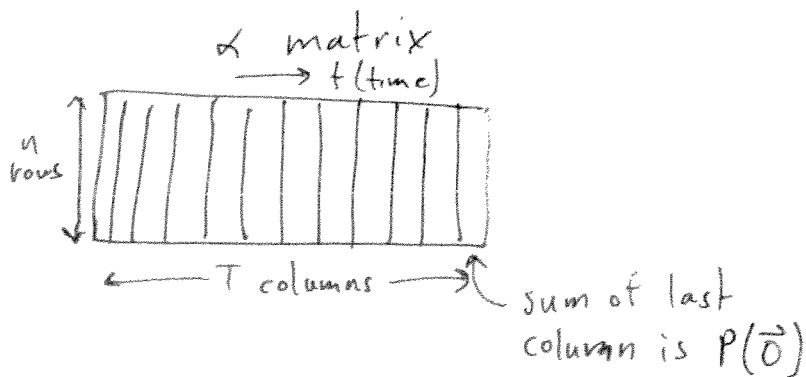 α matrix
t (time)
n
rows
T columns
sum of last
column is P(O⃗)